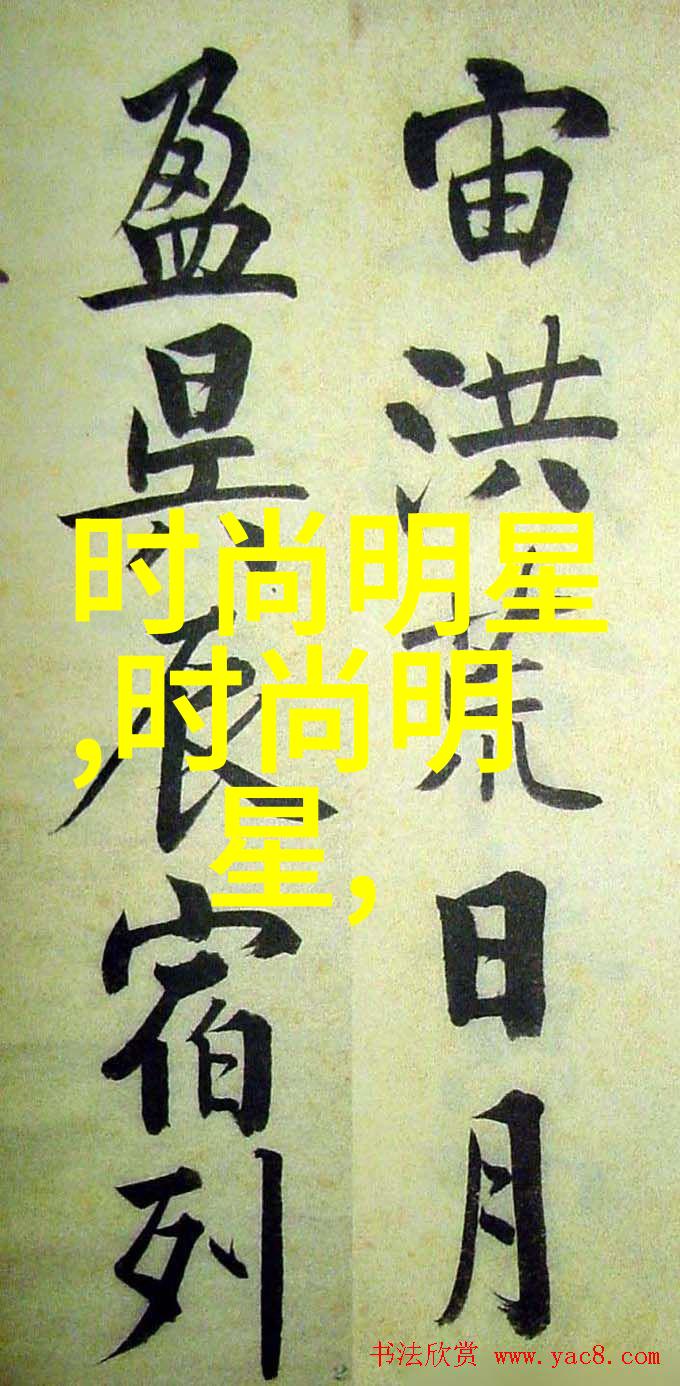 宙洪荒日月
盈昃辰宿列
时尚明星
,时尚明
星,
书法欣赏 www.yac8.com